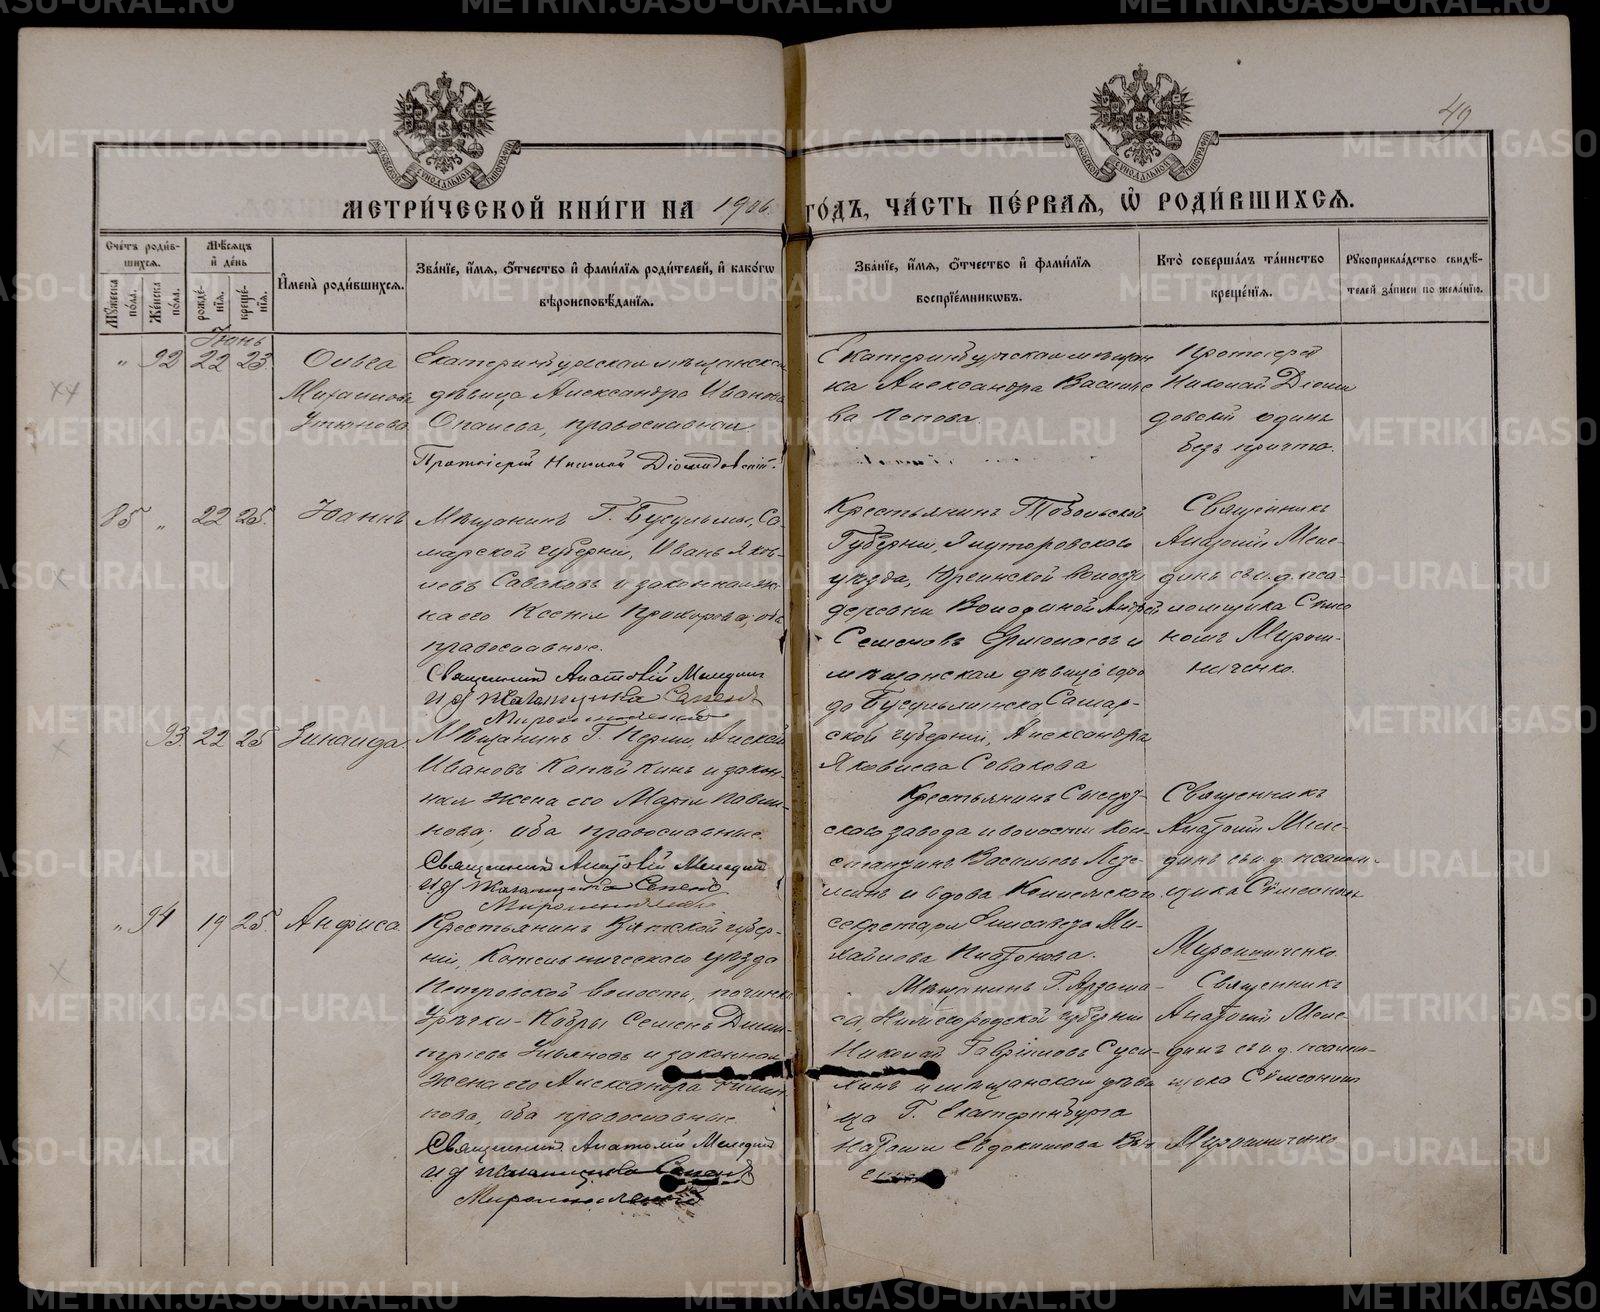 49
МЕТРИ́ЧЕСКОЙ КНИ́ГИ НА 1906 ГО́ДЪ, ЧА́СТЬ ПЕ́РВАЯ, Ѡ҆ РОДИ́ВШИХСЯ.
Сче́тъ роди́вшихся.
Мѣ́сяцъ и҆ де́нь
Мꙋ́жеска по́ла.
Же́нска по́ла.
рожде́нїя.
креще́нїя.
И҆мена̀ роди́вшихся.
Зва́нїе, и҆́мя, ѻ҆́тчество и҆ фами́лїя роди́телей, и҆ како́гѡ
вѣроисповѣ́данїя.
Зва́нїе, и҆́мя, ѻ҆́тчество и҆ фами́лїя
воспрїе́мникѡвъ.
Кто̀ соверша́лъ та́инство
креще́нїя.
Рꙋкоприкла́дство свидѣ́-
телей за́писи по жела́нїю.
Іюнь
" 92 22 23
Ольга
Михаилова
Утюнова
Екатеринбургская мѣщанская
дѣвица Александра Иванова
православная
Протоіерей Николай Діомидовскій.
Екатеринбургская мѣщан
ка Александра Василье
ва Попова.
Протоіерей
Николай Діоми
довскій одинъ
безъ причта.
85 " 22 25.
Іоаннъ
Мѣщанинъ Г. Бугульмы, Са-
марской губерніи, Иванъ Яков-
левъ Саваковъ и законная же-
на его Ксенія Прохорова; оба
православные.
Священникъ Анатолій Мелединъ
И д псаломщика Симеонъ
Мирошниченко
Крестьянинъ Тобольской
Губерніи, Ялуторовскаго
уѣзда, волости
деревни Володиной Андрей
Семеновъ и
мѣщанская дѣвица горо
да Бугульминска Самар-
ской губерніи, Александра
Яковлева Совакова
Священникъ
Анатолій Меле-
динъ съ и. д. пса-
ломщика Симео
номъ Мирош-
ниченко.
93. 22 25
Зинаида.
Мѣщанинъ Г. Перми, Алексѣй
Ивановъ и закон-
ная жена его Марія Павли-
нова; оба православные.
Священникъ Анатолій Мелединъ
И д псаломщика Симеонъ
Мирошниченко
Крестьянинъ Сысерт-
скаго завода и волости Кон-
стантинъ Васильевъ
и вдова Коллежскаго
секретаря Елисавета Ми-
хайлова Платонова.
Священникъ
Анатолій Меле-
динъ съ и. д. псалом-
щика Симеономъ
Мирошниченко.
" 94 19 25.
Анфиса.
Крестьянинъ Вятской губер-
ніи, Котельническаго уѣзда
Петровской волости, починка
Семенъ Дими-
тріевъ Ульяновъ и законная
жена его Александра
оба православные
Священникъ Анатолій Мелединъ
И д псаломщика Симеонъ
Мирошниченко
Мѣщанинъ Г. Арзама-
са, Нижегородской губерніи
Николай Гавріиловъ
и мѣщанская дѣви
ца Г. Екатеринбурга
Евдокимова
Священникъ
Анатолій Меле-
динъ съ и. д. псалом-
щика Симеономъ
Мирошниченко
METRIKI.GASO-URAL.RU